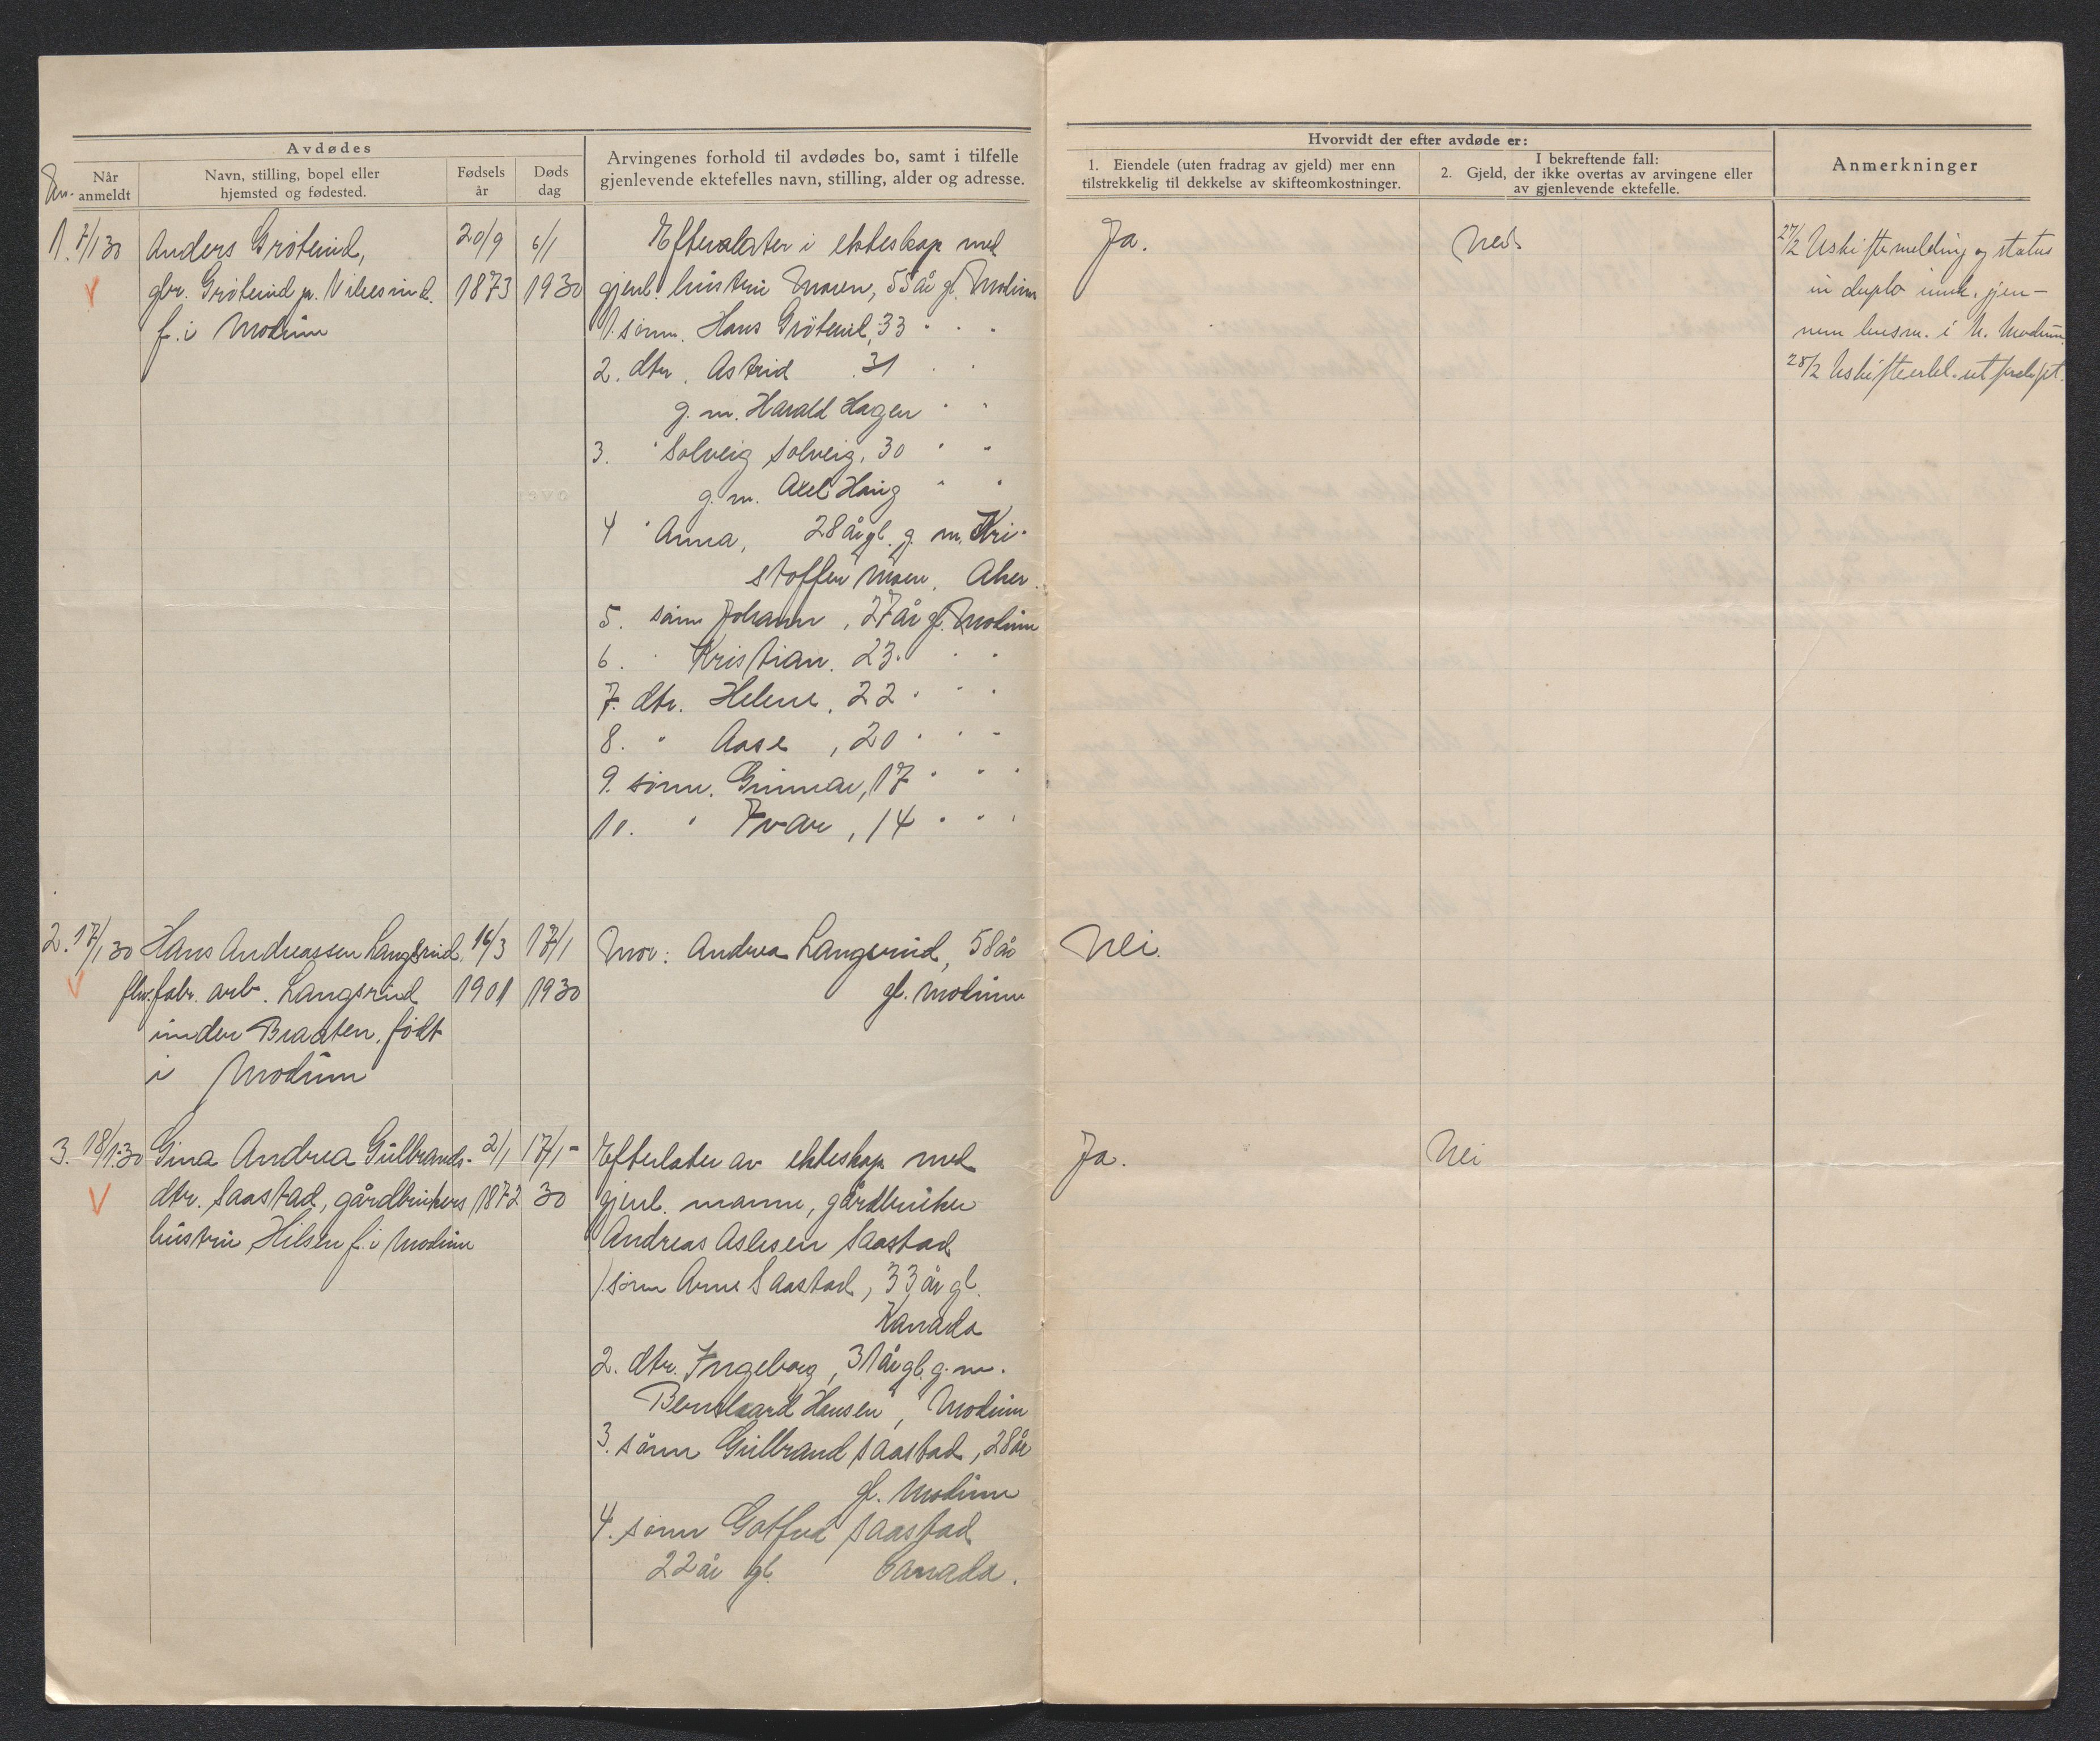 Avdødes
Nr.
Når anmeldt
Navn, stilling, bopel eller hjemsted og fødested.
Fødsels år
Døds dag
Arvingenes forhold til avdødes bo, samt i tilfelle
gjenlevende ektefelles navn, stilling, alder og adresse.
Hvorvidt der efter avdøde er:
1. Eiendele (uten fradrag av gjeld) mer enn
tilstrekkelig til dekkelse av skifteomkostninger.
I bekreftende fall:
2. Gjeld, der ikke overtas av arvingene eller
av gjenlevende ektefelle.
Anmerkninger
1. 7/1 30 Anders Grøterud, 20/9 6/1
gbr. Grøterud pr. Vikesund. 1873 1930
f. i Modum
Efterlater i ekteskap med
gjenl. hustru Maren, 55 år gl. Modum
1. sønn. Hans Grøterud, 33 " " "
2. dtr. Astrid 31 " "
g. m. Harald Hagen " "
3. " Solveig Solveig, 30 " "
g. m. Axel Haug " "
4 " Anna, 28 år gl. g. m. Kri-
stoffer Moen, Aker.
5. sønn Johann, 27 år gl. Modum
6. " Kristian. 23 " " "
7. dtr. Helene, 22 " " "
8. " Aase, 20 " " "
9. sønn. Gunnar, 17 " " "
10. " Ivar, 14 " " "
Ja.
Nei.
27/2 Uskiftemelding og status
in duplo innk. gjen-
nem lensm. i N. Modum.
28/2 Uskifteerkl. utferdiget.
2. 17/1 30 Hans Andreassen Langerud 16/3 17/1
fhv. fabr. arb. Langerud 1901 1930
under Braaten, født
i Modum
Mor: Andrea Langerud, 58 år
gl. Modum
Nei.
3. 18/1 30 Gina Andrea Gulbrands- 2/1 17/1-
dtr. Saastad, gårdbrukers 1872 30
hustru, Hilsen f. i Modum
Efterlater av ekteskap med
gjenl. mann, gårdbruker
Andreas Aslesen Saastad
1. sønn Arne Saastad, 33 år gl.
Kanada
2. dtr. Ingeborg, 31 år gl. g. m.
Bernhaard Hansen, Modum
3. sønn Gulbrand Saastad, 28 år
gl. Modum
4. sønn Gotfred Saastad
22 år gl. Canada.
Ja.
Nei